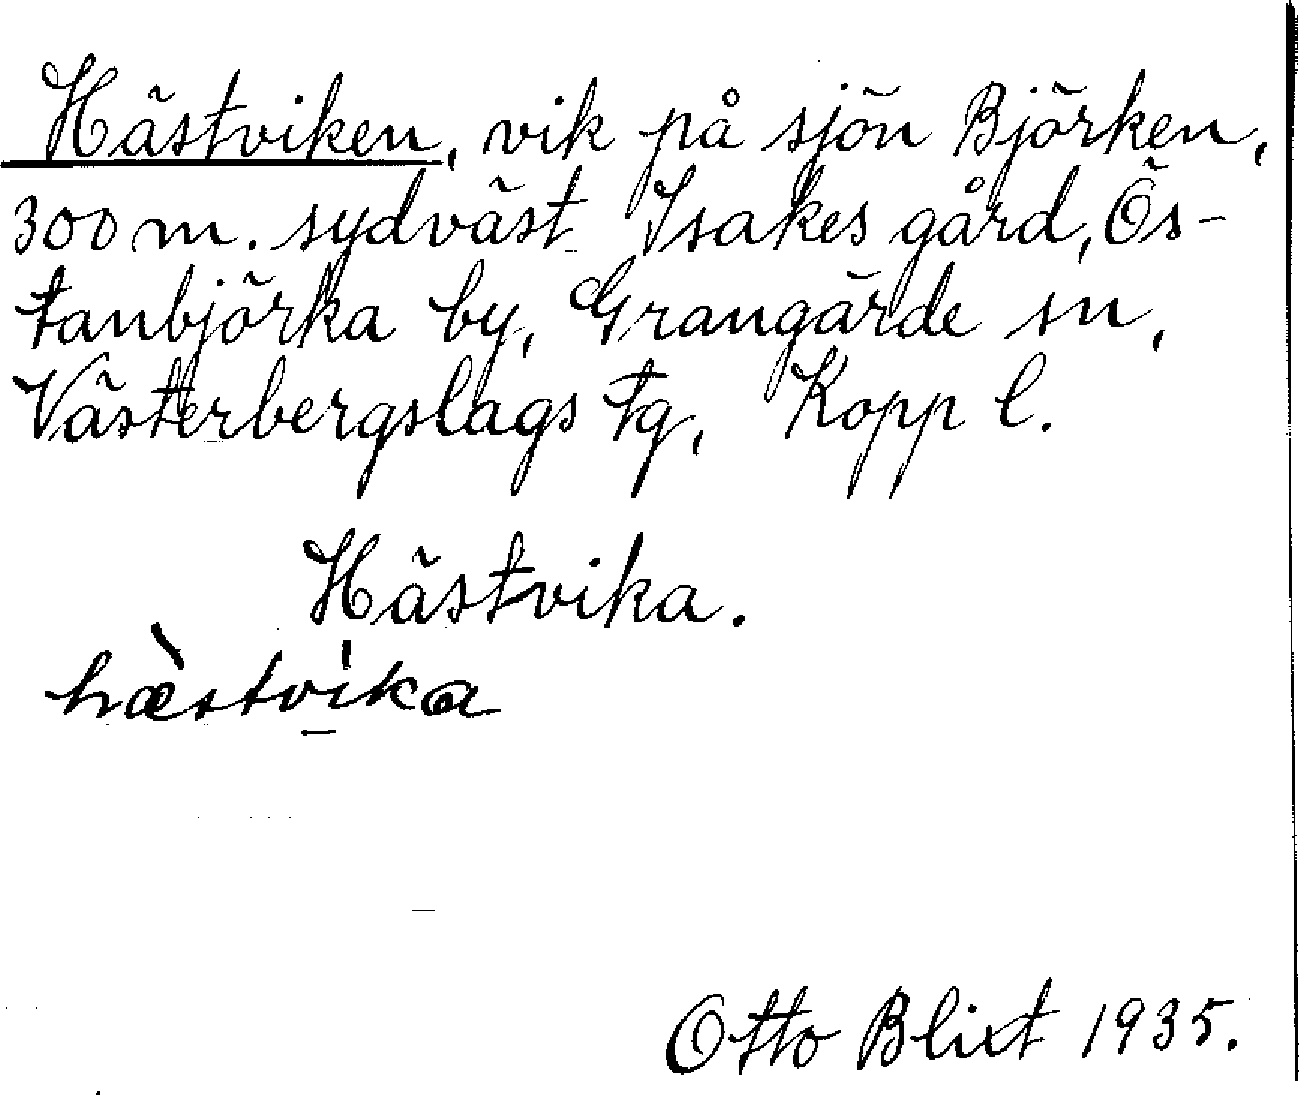 Hästviken, vik på sjön Björken,
300 m. sydväst Isakes gård, Ös-
tanbjörka by, Grangärde sn,
Västerbergslags tg, Kopp l.
Hästvika.
hæ̀stvi̠̍ka
Otto Blixt 1935.